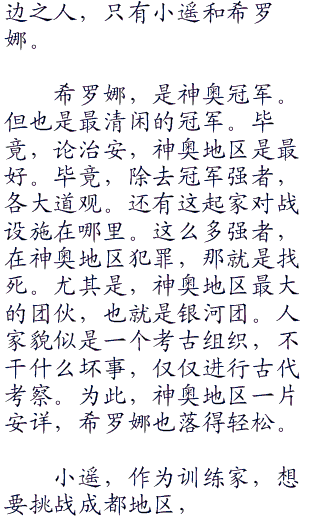 边之人，只有小遥和希罗
娜。
希罗娜，是神奥冠军。
但也是最清闲的冠军。毕
竟，论治安，神奥地区是最
好。毕竟，除去冠军强者，
各大道观。还有这起家对战
设施在哪里。这么多强者，
在神奥地区犯罪，那就是找
死。尤其是，神奥地区最大
的团伙，也就是银河团。人
家貌似是一个考古组织，不
干什么坏事，仅仅进行古代
考察。为此，神奥地区一片
安详，希罗娜也落得轻松。
小遥，作为训练家，想
要挑战成都地区，